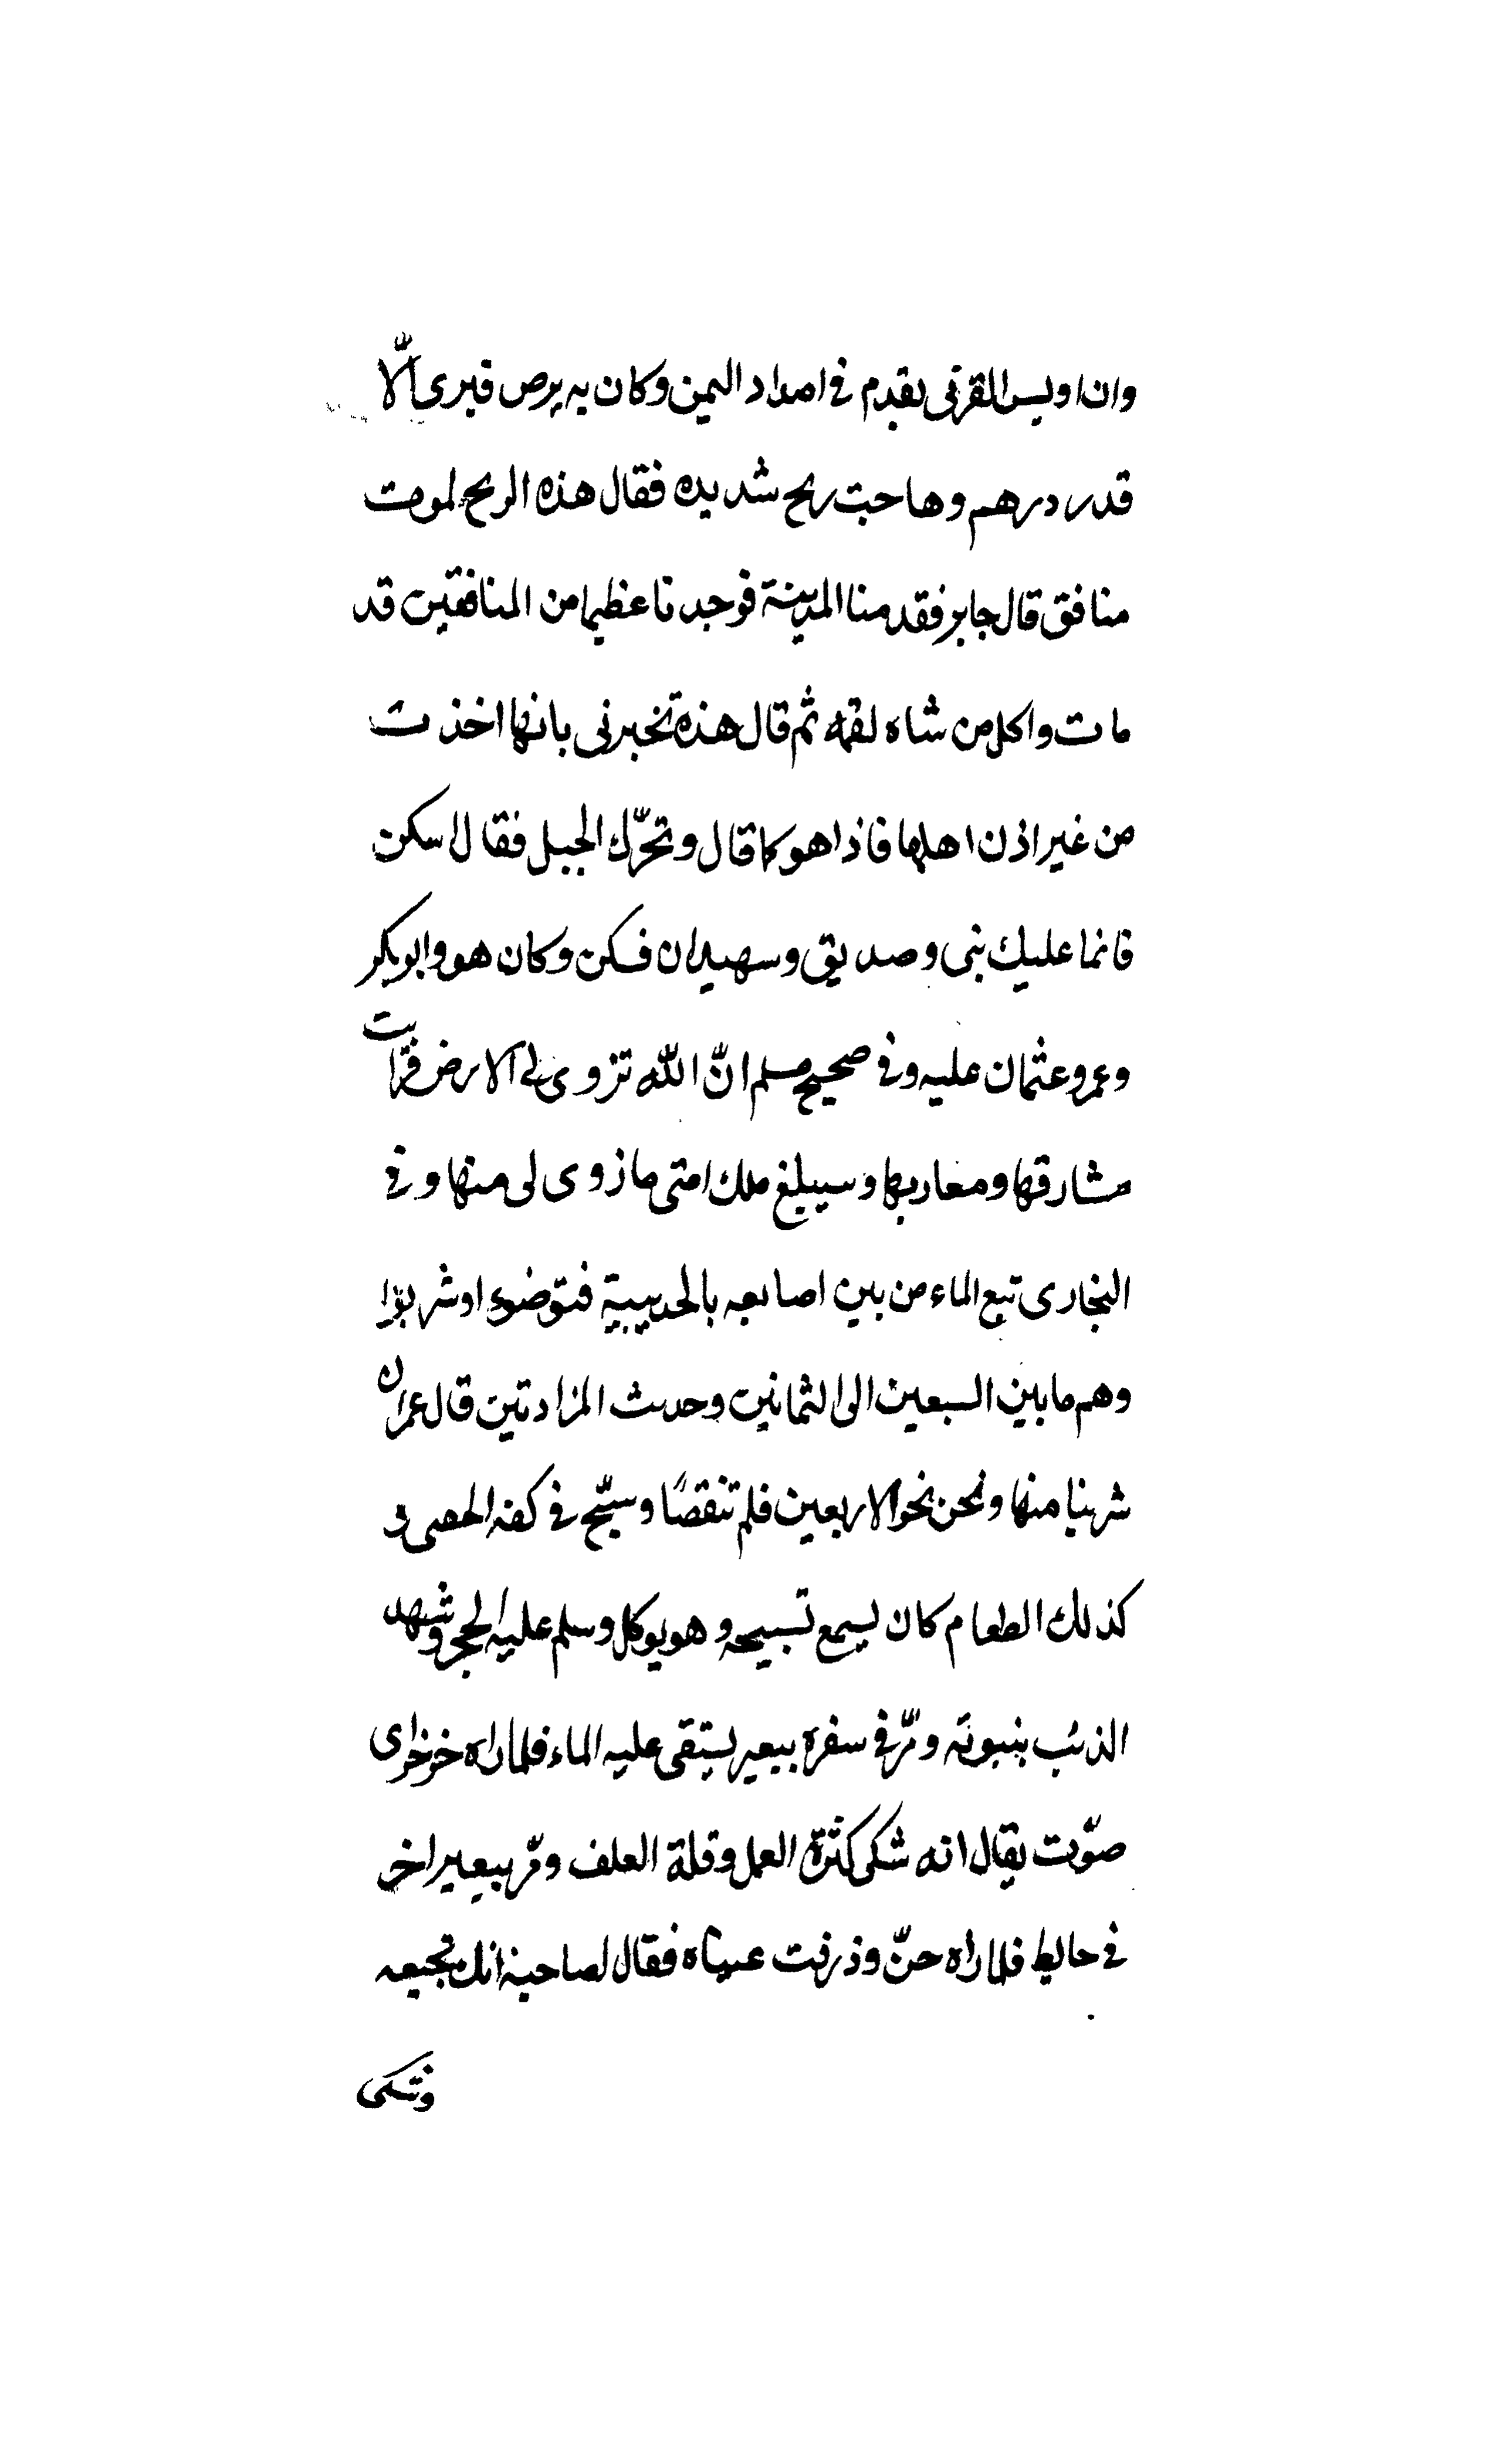 وان اويس القرنى يقدم فى امداد اليمن وكان به برص فبرى الّا
قدر درهم وهاجت ريح شديده فقال هذه الريح لموت
منافق قال جابر فقدمنا المدينة فوجدنا عظيما من المنافقين قد
مات واكل من شاه لقمه ثم قال هذه تخبرنى بانها اخذت
من غير اذن اهلها فاذا هو كما قال وتحرّك الجبل فقال اسكن
فانما عليك نبى وصديق وسهيدان فسكن وكان هو وابو بكر
وعمر وعثمان عليه وفى صحيح مسلم انّ الله تزوى لى الارض فرات
مشارقها ومغاربها وسيبلغ ملك امتى ما زوى لى منها وفى
البخارى نبع الماء من بين اصابعه بالحديبية فتوضوء اوشربوا
وهم ما بين السبعين الى الثمانين وحديث المزادتين قال عمران
شربنا منها ونحن نحو الاربعين فلم تنقصا وسبّح فى كفه الحصى و
كذلك الطعام كان يسمع تسبيحه وهو يوكل وسلم عليه الحجر وشهد
الذئب بنبوته ومرّ فى سفره ببعير يستقى عليه الماء فلما راه خرخر اى
صوّت يقال انه شكى كثرة العمل وقلة العلف ومرّ ببعير اخر
فى حايط فلما راه حنّ وذرفت عيناه فقال لصاحبه انك تجيعه
وتشكى